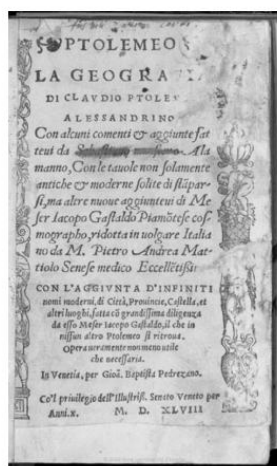 PTOLEMEO
LA GEOGRAFIA
DI CLAVDIO PTOLE
ALESSANDRINO
Con alcuni comenti & aggiunte fat
teui da Sebastiano munstero Ala
manno, Con le tauole non solamente
antiche & moderne solite di stãpar
si, ma altre nuoue aggiunteui di Me
ser Iacopo Gastaldo Piamõtese cos
mographo, ridotta in uolgare Italia
no da M. Pietro Andrea Mat
tiolo Senese medico Eccellẽtiss
CON L'AGGIVNTA D'INFINITI
nomi moderni, di Città, Prouincie, Castella, et
altri luoghi, fatta cõ grandissima diligenza
da esso Meser Iacopo Gastaldo, il che in
nissun altro Ptolemeo si ritroua.
Opera ueramente non meno utile
che necessaria.
In Venetia, per Gioã. Baptista Pedrezano.
Co'l priuilegio dell'Illustriss. Senato Veneto per
Anni. x. M. D. XLVIII